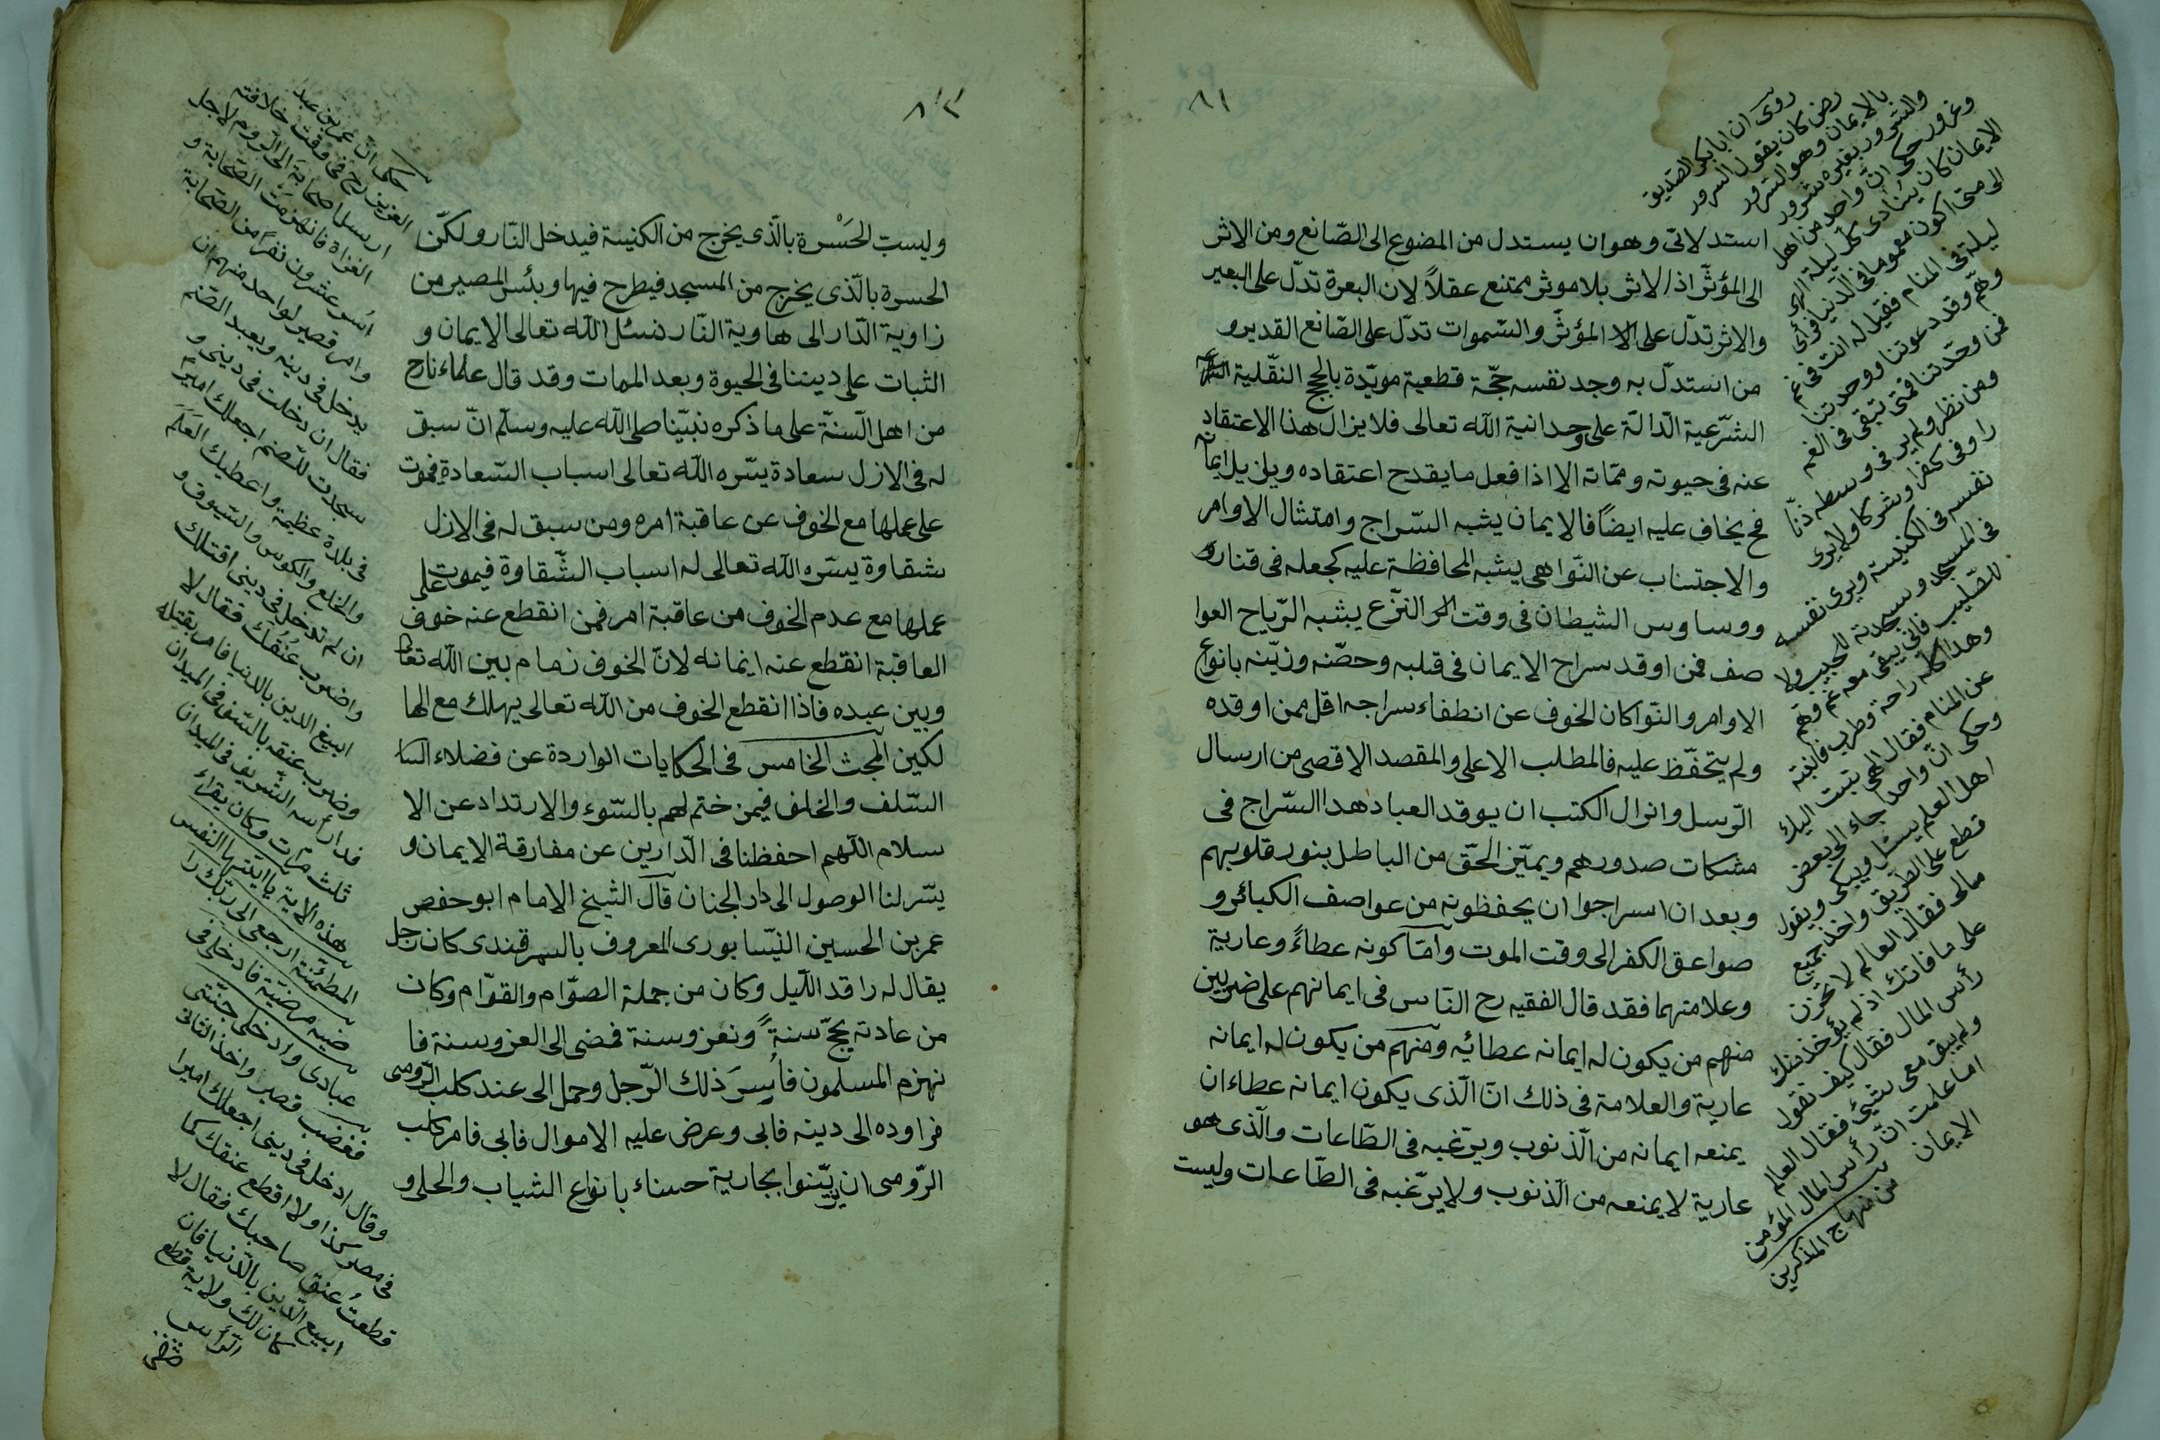 ٨١
استدلالاتى وهو ان يستدل من المضوع الى الصّانع ومن الاثر
الى المؤثّر اذ الاثر بلا موثر ممتنع عقلاً لان البعرة تدلّ على البعير
والاثر تدلّ على المؤثّر والسّموات تدلّ على الصّانع القدير و
من استدلّ به وجد نفسه حجّة قطعية مويّدة بالحجج النقّلية
الشّرعية الدّالّة على وحدانية اللّه تعالى فلا يزال هذا الاعتقاد
عنه فى حيوته ومماته الا اذا فعل ما يقدح اعتقاده ويزيل ايمانه
فح يخاف عليه ايضًا فالايمان يشبه السّراج وامتثال الاوامر
والاجتناب عن النّواهى يشبه المحافظة عليه كجعله فى قنارة
ووساوس الشيطان فى وقت النّزع يشبه الرّياح العوا
صف فمن اوقد سراج الايمان فى قلبه وحصّنه وزيّنه بانواع
الاوامر والنّوا كان الخوف عن انطفاء سراجه اقل ممن اوقده
ولم يتحفّظ عليه فالمطلب الاعلى والمقصد الاقصى من ارسال
الرّسل وانزال الكتب ان يوقد العباد هذا السّراج فى
مشكات صدورهم ويميّز الحقّ من الباطل بنور قلوبهم
وبعد ان اسراجوا ان يحفظونه من عواصف الكبائر و
صواعق الكفر الى وقت الموت وامّا كونه عطاءً وعارية
وعلامتهما فقد قال الفقيه رح النّاس فى ايمانهم على ضربين
منهم من يكون له ايمانه عطائيه ومنهم من يكون له ايمانه
عارية والعلامة فى ذلك انّ الّذى يكون ايمانه عطاء ان
يمنعه ايمانه من الذنوب ويرّغبه فى الطّاعات والّذى هو
عارية لا يمنعه من الذنوب ولا يرّغبه فى الطّاعات وليست
روى ان ابا بكر الصّديق
رض كان يقول السرور
بالايمان وهو السّرور
والسّرور بغيره شرور
وغرور حكى انّ واحد من اهل
الايمان كان ينادى كلّ ليلة الهى
الى متى اكون مغموما فى الدّنيا فرأى
ليلة فى المنام فقيل له انت فى غم
وهمّ وقد دعوتنا ووحدتنا
فمن وحّدتنا فمتى تبقى فى الغم
ومن نظر ولم ير فى وسطه زنّا
را وفى كفرا وشركا ولا يرى
نفسه فى الكنيسة ويرى نفسه
فى المسجد وسجدته للحبيب ولا
للصّليب فانى يبقى معه غم وهمّ
وهذا كلّه راحة وطرب فانتبه
عن المنام فقال الهى تبت اليك
وحكى انّ واحدا جاء الى بعض
اهل العلم يسئل ويبكى ويقول
قطع على الطريق واخذ جميع
مالى فقال العالم لا تحزن
على ما فاتك اذ لم يؤخذ منك
رأس المال فقال كيف تقول
ولم يبق معى شيئ فقال العالم
اما علمت انّ رأس المال المؤمن
الايمان
من منهاج المذكرين
وليست الحَسْرة بالّذى يخرج من الكنيسة فيدخل النّار ولكنّ
الحسرة بالّذى يخرج من المسجد فيطرح فيها وبئس المصير من
زاوية الدّار الى هاوية النّار نسئل اللّه تعالى الايمان و
الثبات على ديننا فى الحيوة وبعد الممات وقد قال علماءنا رح
من اهل السّنّة على ما ذكره نبيّنا صلى اللّه عليه وسلّم انّ سبق
له فى الازل سعادة يسّره اللّه تعالى اسباب السّعادة فيموت
على عملها مع الخوف عن عاقبة امره ومن سبق له فى الازل
شقاوة يسّره اللّه تعالى له اسباب الشّقاوة فيموت على
عملها مع عدم الخوف من عاقبة امر فمن انقطع عنه خوف
العاقبة انقطع عنه ايمانه لانّ الخوف زمام بين اللّه تعالى
وبين عبده فاذا انقطع الخوف من اللّه تعالى يهلك مع الها
لكين المبحث الخامس فى الحكايات الواردة عن فضلاء السا
السّلف والخلف فيمن ختم لهم بالسّوء والارتداد عن الا
سلام اللّهم احفظنا فى الدّارين عن مفارقة الايمان و
يسّر لنا الوصول الى دار الجنان قال الشيخ الامام ابو حفص
عمر بن الحسين النيّسابورى المعروف بالسمرقندى كان رجل
يقال له راقد اللّيل وكان من جملة الصوّام والقوّام وكان
من عادته يحجّ سنةً ونغزو سنة فمضى الى الغزو سنة فا
نهزم المسلمون فأُسِرَ ذلك الرّجل وحمل الى عند كلب الرّومى
فراوده الى دينه فابى وعرض عليه الاموال فابى فامر كلب
الرّومى ان يزيّنوا بجارية حسناء بانواع الثياب والحلى و
حكى انّ عمر بن عبد
العزيز رح فى وقت خلافته
ارسل اصحابه الى الرّوم لاجل
الغزاة فانهزمت الصّحابة و
اسر عشرون نفرا من الصّحابة
وامر قصير لواحد منهم ان
يدخل فى دينه ويعبد الصّنم
فقال ان دخلت فى دينى و
سجدت للصّنم اجعلك اميرا
فى بلدة عظيمة واعطيك العَلَم
والخلع والكوس والسّيوف و
ان لم تدخل فى دينى اقتلك
واضرب عنقك فقال لا
ابيع الدين بالدنيا فامر بقتله
وضرب عنقه بالسّيف فى الميدان
فدار رأسه الشّريف فى الميدان
ثلث مرّات وكان يقراء
بهذه الاية يا ايّتها النفس
المطمئنّة ارجعى الى ربّك را
ضيه مرضيّة فادخلى فى
عبادى وادخلى جنّتى
فغضب قصير واخذ الثانى
وقال ادخل فى دينى اجعلك اميرا
فى مصر كذا ولا اقطع عنقك كما
قطعتُ عنق صاحبك فقال لا
ابيع الدّين بالدّنيا فان
كان لك ولاية قطع
الرّأس